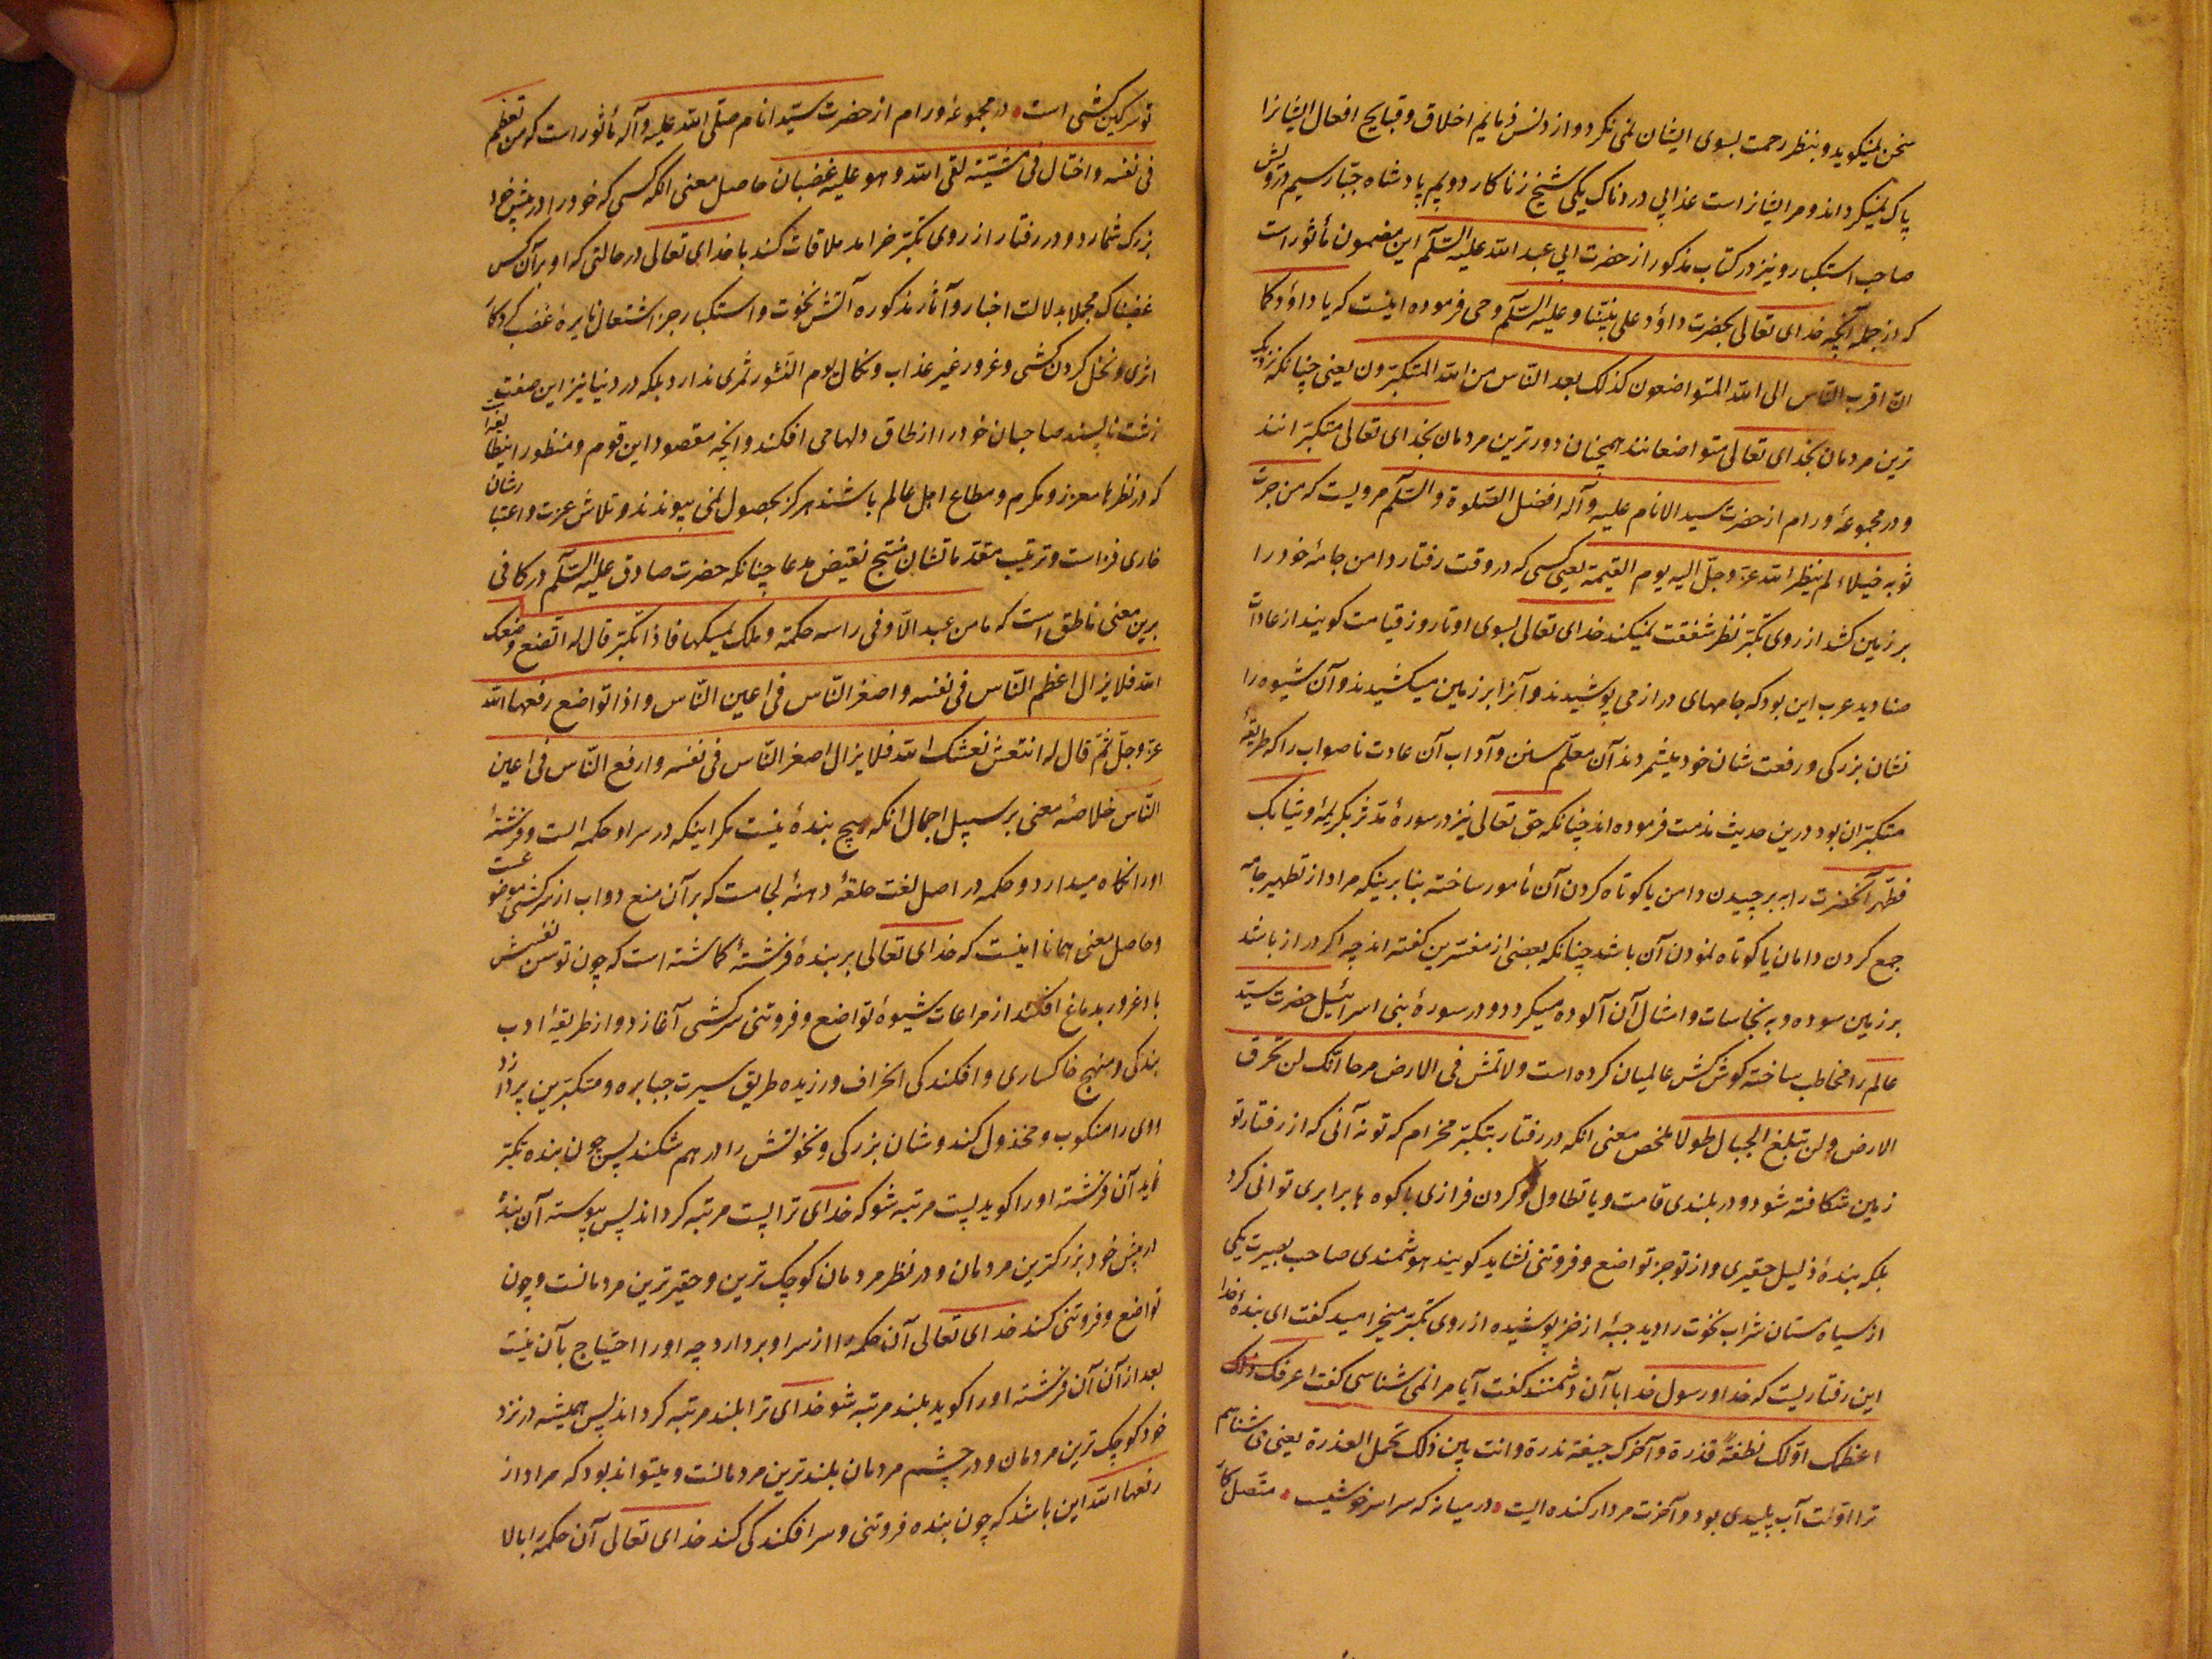 سخن نمیکوید و بنظر رحمت بسوی ایشان نمی نکرد و از دنس ذمایم اخلاق و قبایح افعال ایشانرا
پاک نمیکرداند و مر ایشانراست عذابی دردناک یکی شیخ زناکار دویم پادشاه جبّار سیم درویش
صاحب استکبار و نیز در کتاب مذکور از حضرت ابی عبد الله علیه السّلام این مضمون مأثور است
که از جمله آنچه خدای تعالی بحضرت داؤد علی نبیّنا و علیه السّلام وحی فرموده اینست که یا داؤد کما
انّ اقرب النّاس الی الله المتواضعون کذلک بعد النّاس من الله المتکبّرون یعنی چنانکه نزدیک
ترین مردمان بخدای تعالی متواضعانند همچنان دورترین مردمان بخدای تعالی متکبّرانند
و در مجموعهٔ ورام از حضرت سید الانام علیه و آله افضل الصّلوة و السّلام مرویست که من جرّ
ثوبه خیلاء لم ینظر الله عزّ وجلّ الیه یوم القیمة یعنی کسی که در وقت رفتار دامن جامهٔ خود را
بر زمین کشد از روی تکبّر نظر شفقت نمیکند خدای تعالی بسوی او تا روز قیامت کویند از عادات
صنادید عرب این بود که جامهای دراز می پوشیدند و آنرا بر زمین میکشیدند و آن شیوه را
نشان بزرکی و رفعت شان خود میشمردند آن معلّم سنن و آداب آن عادت ناصواب را که طریقهٔ
متکبّران بود درین حدیث مذمت فرموده اند چنانکه حق تعالی نیز در سورهٔ مدّثر بکریمهٔ و ثیابک
فطهّر آنحضرت را به برچیدن دامن یا کوتاه کردن آن مأمور ساخته بنا برینکه مراد از تطهیر جامه
جمع کردن دامان یا کوتاه نمودن آن باشد چنانکه بعضی از مفسّرین کفته اند چه اکر دراز باشد
بر زمین سوده و به نجاسات و امثال آن آلوده میکردد و در سورهٔ بنی اسرائیل حضرت سیّد
عالم را مخاطب ساخته کوش کش عالمیان کرده است و لا تمش فی الارض مرحا انّک لن تخرق
الارض و لن تبلغ الجبال طولا ملخص معنی انکه در رفتار بتکبّر مخرام که تو نه آنی که از رفتار تو
زمین شکافته شود و در بلندی قامت و با تطاول و کردن فرازی با کوه ها برابری توانی کرد
بلکه بندهٔ ذلیل حقیری و از تو جز تواضع و فروتنی نشاید کویند هوشمندی صاحب بصیرت یکی
از سیاه مستان شراب نخوت را دید جبّهٔ از خز پوشیده از روی تکبّر میخرامید کفت ای بندهٔ خدا
این رفتاریست که خدا و رسول خدا با آن دشمنند کفت آیا مرا نمی شناسی کفت اعرفک ذلک
اعظک اوّلک نطفة قذرة و آخرک جیفة نذرة و انت بین ذلک تحمل العذرة یعنی می شناسم
ترا اوّلت آب پلیدی بود و آخرت مردار کنده ایست در میانه که سراسر خوشیست متّصل
تو سرکین کشی است در مجموعهٔ ورام از حضرت سیّد انام صلّی الله علیه و آله مأثور است که من تعظّم
فی نفسه و اختال فی مشیّته لقی الله و هو علیه غضبان حاصل معنی انکه کسی که خود را در پیش خود
بزرک شمارد و در رفتار از روی تکبّر خرامد ملاقات کند با خدای تعالی در حالتی که او بر آن کس
غضبناک مجملا بدلالت اخبار و آثار مذکوره آتش نخوت و استکبار جز اشتعال نایرهٔ غضب کردکار
اثری و نخل کردن کشی و غرور غیر عذاب و نکال یوم النّشور ثمری ندارد بلکه در دنیا نیز این صفت
زشت ناپسند صاحبان خود را از طاق دلها می افکند و انچه مقصود این قوم و منظور این طایفه
که در نظرها معزز و مکرم و مطاع اهل عالم باشند هرکز بحصول نمی پیوندند و تلاش عزت و اعتبارشان
خاری فزاست و ترتیب مقدّماتشان منتج نقیض مدعا چنانکه حضرت صادق علیه السّلام در کافی
برین معنی ناطق است که ما من عبد الّا و فی راسه حکمة و ملک یمسکها فاذا تکبّر قال له اتّضع وضعک
الله فلا یزال اعظم النّاس فی نفسه و اصغر النّاس فی اعین النّاس و اذا تواضع رفعها الله
عزّ وجلّ ثمّ قال له انتعش نعشک الله فلا یزال اصغر النّاس فی نفسه و ارفع النّاس فی اعین
النّاس خلاصهٔ معنی بر سبیل اجمال انکه هیچ بندهٔ نیست مکر اینکه در سر او حکمه ایست و فرشتهٔ
اورا نکاه میدارد و حکمه در اصل لغت حلقهٔ دهنهٔ لجامست که بر آن منع دواب از سرکشی موضوعست
و حاصل معنی همانا اینست که خدای تعالی بر بندهٔ فرشتهٔ کماشته است که چون توسن نفسش
باد غرور بدماغ افکند از مراعات شیوهٔ تواضع و فروتنی سرکشی آغازد و از طریقهٔ ادب
بندکی و منهج خاکساری و افکندکی انحراف ورزیده طریق سیرت جبابره و متکبّرین پردازد
او را منکوب و مخذول کند و شان بزرکی و نخوتش را در هم شکند پس چون بنده تکبّر
نماید آن فرشته او را کوید پست مرتبه شو که خدای ترا پست مرتبه کرداند پس پیوسته آن بندهٔ
در پیش خود بزرکترین مردمان و در نظر مردمان کوچک ترین و حقیرترین مردمانست و چون
تواضع و فروتنی کند خدای تعالی آن حکمه را از سر او بردارد چه او را احتیاج بآن نیست
بعد از آن آن فرشته او را کوید بلند مرتبه شو خدای ترا بلند مرتبه کرداند پس همیشه در نزد
خود کوچک ترین مردمان و در چشم مردمان بلندترین مردمانست و میتواند بود که مراد از
رفعها الله این باشد که چون بنده فروتنی و سرافکندکی کند خدای تعالی آن حکمه را بالا